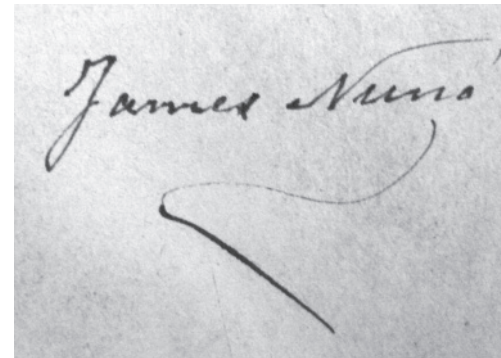 James Nunó